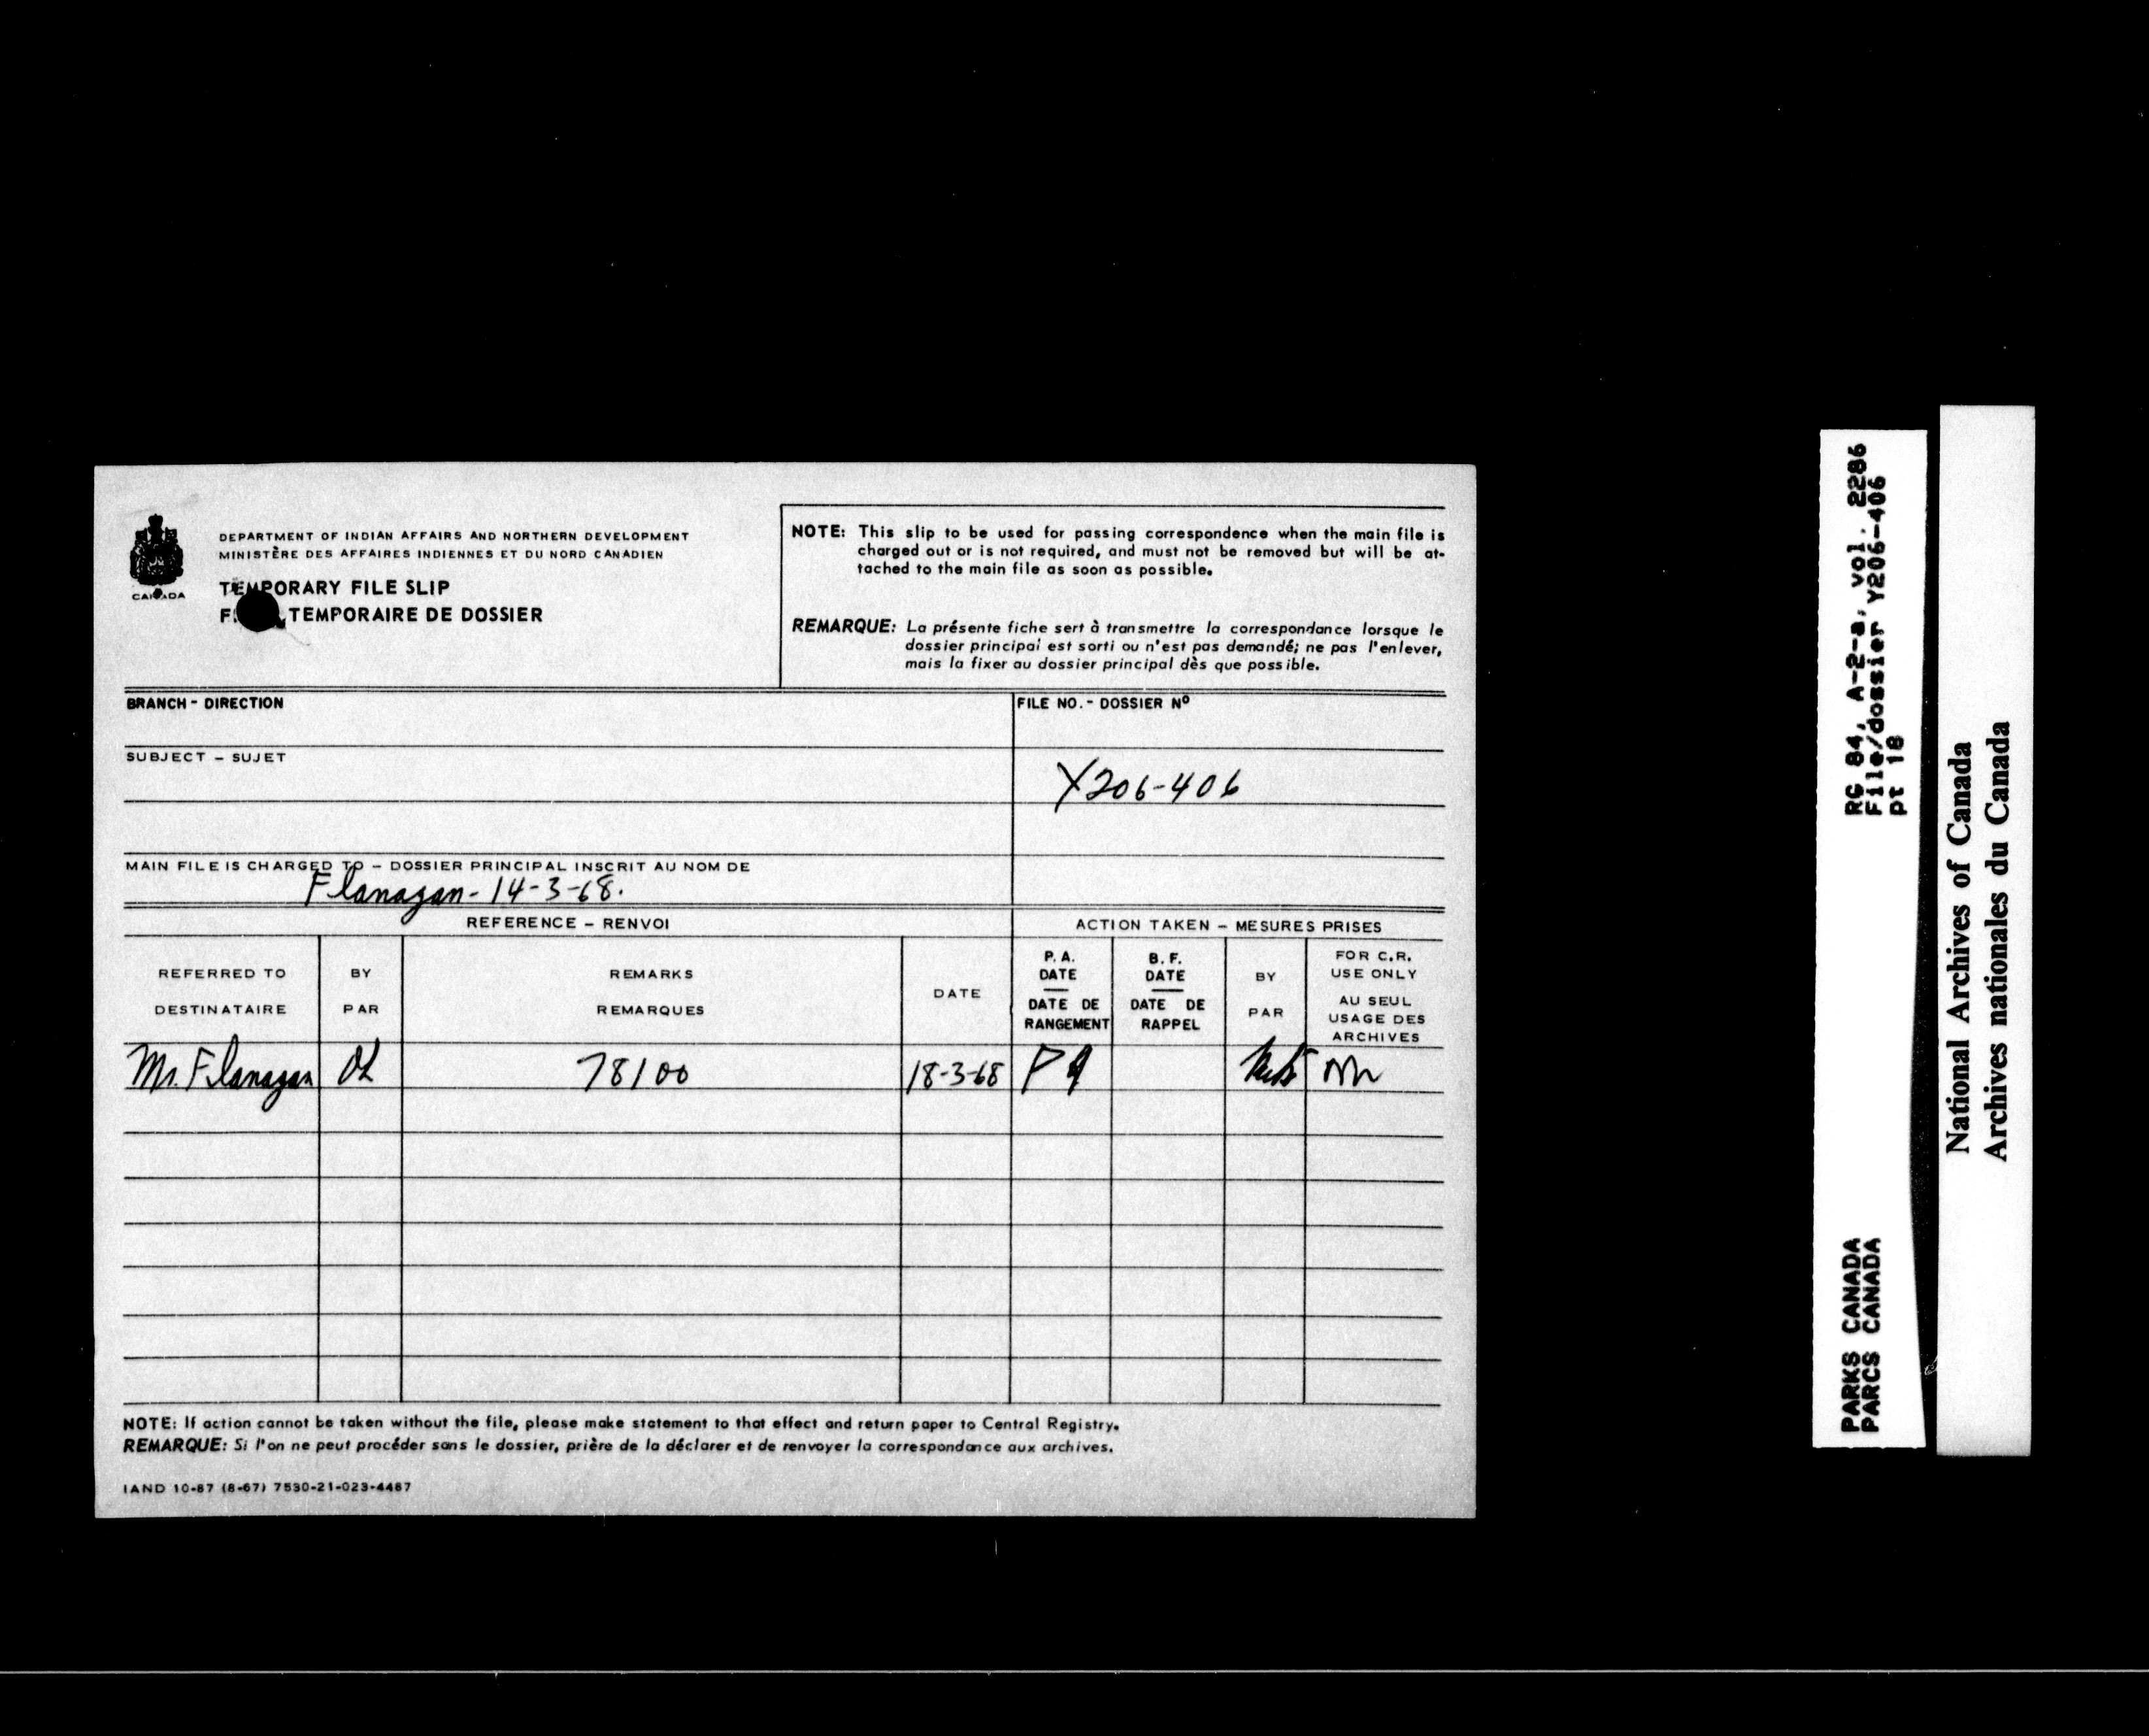 CANADA
DEPARTMENT OF INDIAN AFFAIRS AND NORTHERN DEVELOPMENT
MINISTÈRE DES AFFAIRES INDIENNES ET DU NORD CANADIEN
TEMPORARY FILE SLIP
TEMPORAIRE DE DOSSIER
NOTE: This slip to be used for passing correspondence when the main file is
charged out or is not required, and must not be removed but will be at-
tached to the main file as soon as possible.
REMARQUE: La présente fiche sert à transmettre la correspondance lorsque le
dossier principal est sorti ou n'est pas demandé; ne pas l'enlever,
mais la fixer au dossier principal dès que possible.
BRANCH - DIRECTION
FILE NO. - DOSSIER Nº
SUBJECT - SUJET
Y206-406
MAIN FILE IS CHARGED TO - DOSSIER PRINCIPAL INSCRIT AU NOM DE
Flanagan - 14-3-68.
REFERENCE - RENVOI
ACTION TAKEN - MESURES PRISES
REFERRED TO
DESTINATAIRE
BY
PAR
REMARKS
REMARQUES
DATE
P.A.
DATE
DATE DE
RANGEMENT
B.F.
DATE
DATE DE
RAPPEL
BY
PAR
FOR C.R.
USE ONLY
AU SEUL
USAGE DES
ARCHIVES
Mr. Flanagan 78100 18-3-68
NOTE: If action cannot be taken without the file, please make statement to that effect and return paper to Central Registry.
REMARQUE: Si l'on ne peut procéder sans le dossier, prière de la déclarer et de renvoyer la correspondance aux archives.
IAND 10-87 (8-67) 7530-21-023-4487
RG 84, A-2-a, vol. 2286
File/dossier Y206-406
pt 18
PARKS CANADA
PARCS CANADA
National Archives of Canada
Archives nationales du Canada